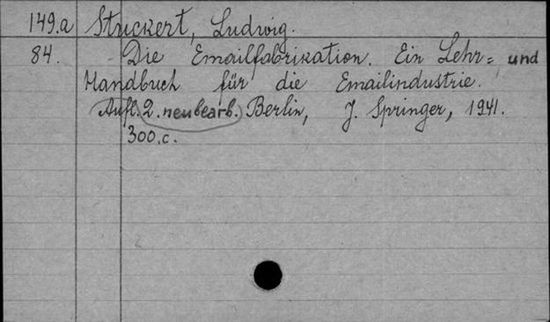 149.a Stuckert, Ludwig.
84. Die Emailfabrikation. Ein Lehr= und
Handbuch für die Emailindustrie.
Aufl. 2. neubearb. Berlin, J. Springer, 1941.
300.c.